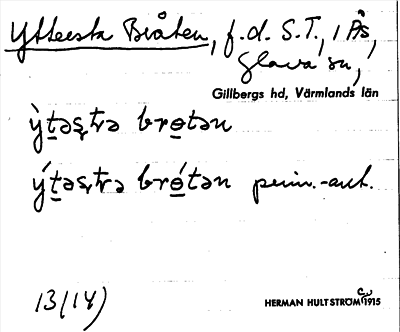 Ytteersta Bråten, f.d. S.T., i Ås,
Glava sn,
Gillbergs hd, Värmlands län
ỳt̲əşt̶rə bro̲tən
ýt̲əşt̶rə bró̲tən
13(14)
HERMAN HULTSTRÖM cv 1915